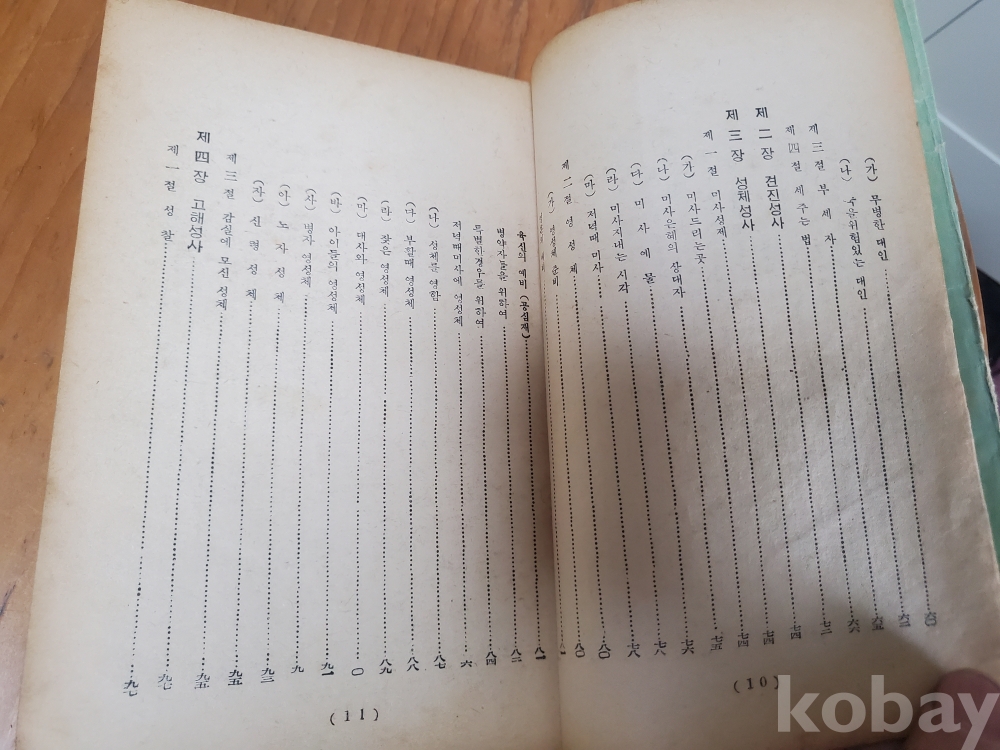 (가) 무병한 대인……六〇
(나) 죽음위험있는 대인……
제三절 부 세 자……六五
제四절 세 주 는 법……六六
제二장 견진성사……七二
제三장 성체성사……七四
제一절 미사성제……七四
(가) 미사드리는곳……七四
(나) 미사은혜의 상대자……七五
(다) 미 사 예 물……七六
(라) 미사지내는 시각……七八
(마) 저녁때 미사……七八
제二절 영 성 체……八〇
(가) 영성체 준비……八〇
(10)
육신의 예비 (공심재)……八一
병약자들을 위하여……八二
특별한경우를 위하여……八四
저녁때미사에 영성체……六
(나) 성체를 영함……八七
(다) 부활때 영성체……八八
(라) 잦은 영성체……八九
(마) 대사와 영성체……〇
(바) 아이들의 영성체……九一
(사) 병자 영성체……九
(아) 노 자 성 체……九三
(자) 신 령 성 체……九五
제三절 감실에 모신 성체……九五
제四장 고해성사……九七
제一절 성 찰……九七
(11)
kobay